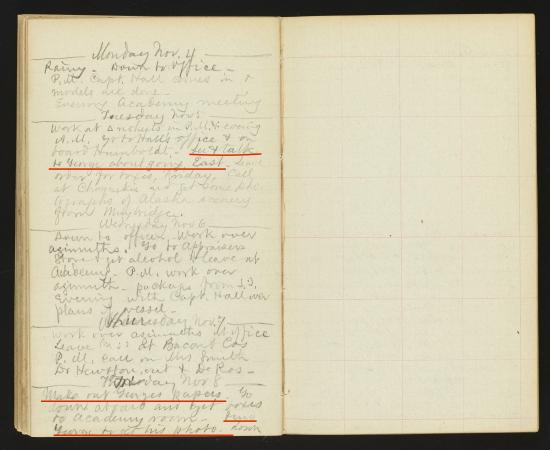 Monday Nov. 4
Rainy. Down to office -
P.M. Capt. Hall comes in &
models are done.
Evening Academy meeting
Tuesday Nov 5
Work at in P.M. & evening
A.M. Go to Hall's office & on
board Humboldt. See & talk
to George about going East. Leave
order for boxes, Friday. Call
at and get some pho
tographs of Alaska scenery
from Muybridge.
Wednesday Nov 6
Down to office. Work over
azimuths. Go to Appraisers
Store & get alcohol & leave at
Academy. P.M. work over
azimuths - packages from S.I.
Evening with Capt. Hall over
plans of vessel -
Thursday Nov. 7
Work over azimuths at office
Leave at Bacon & Co's
P.M. call on Mrs Smith
Dr Hewston, out & De Ros -
day Nov 8
Make out Georges papers. Go
down aboard and get boxes
to Academy room.
George to get his photo. down